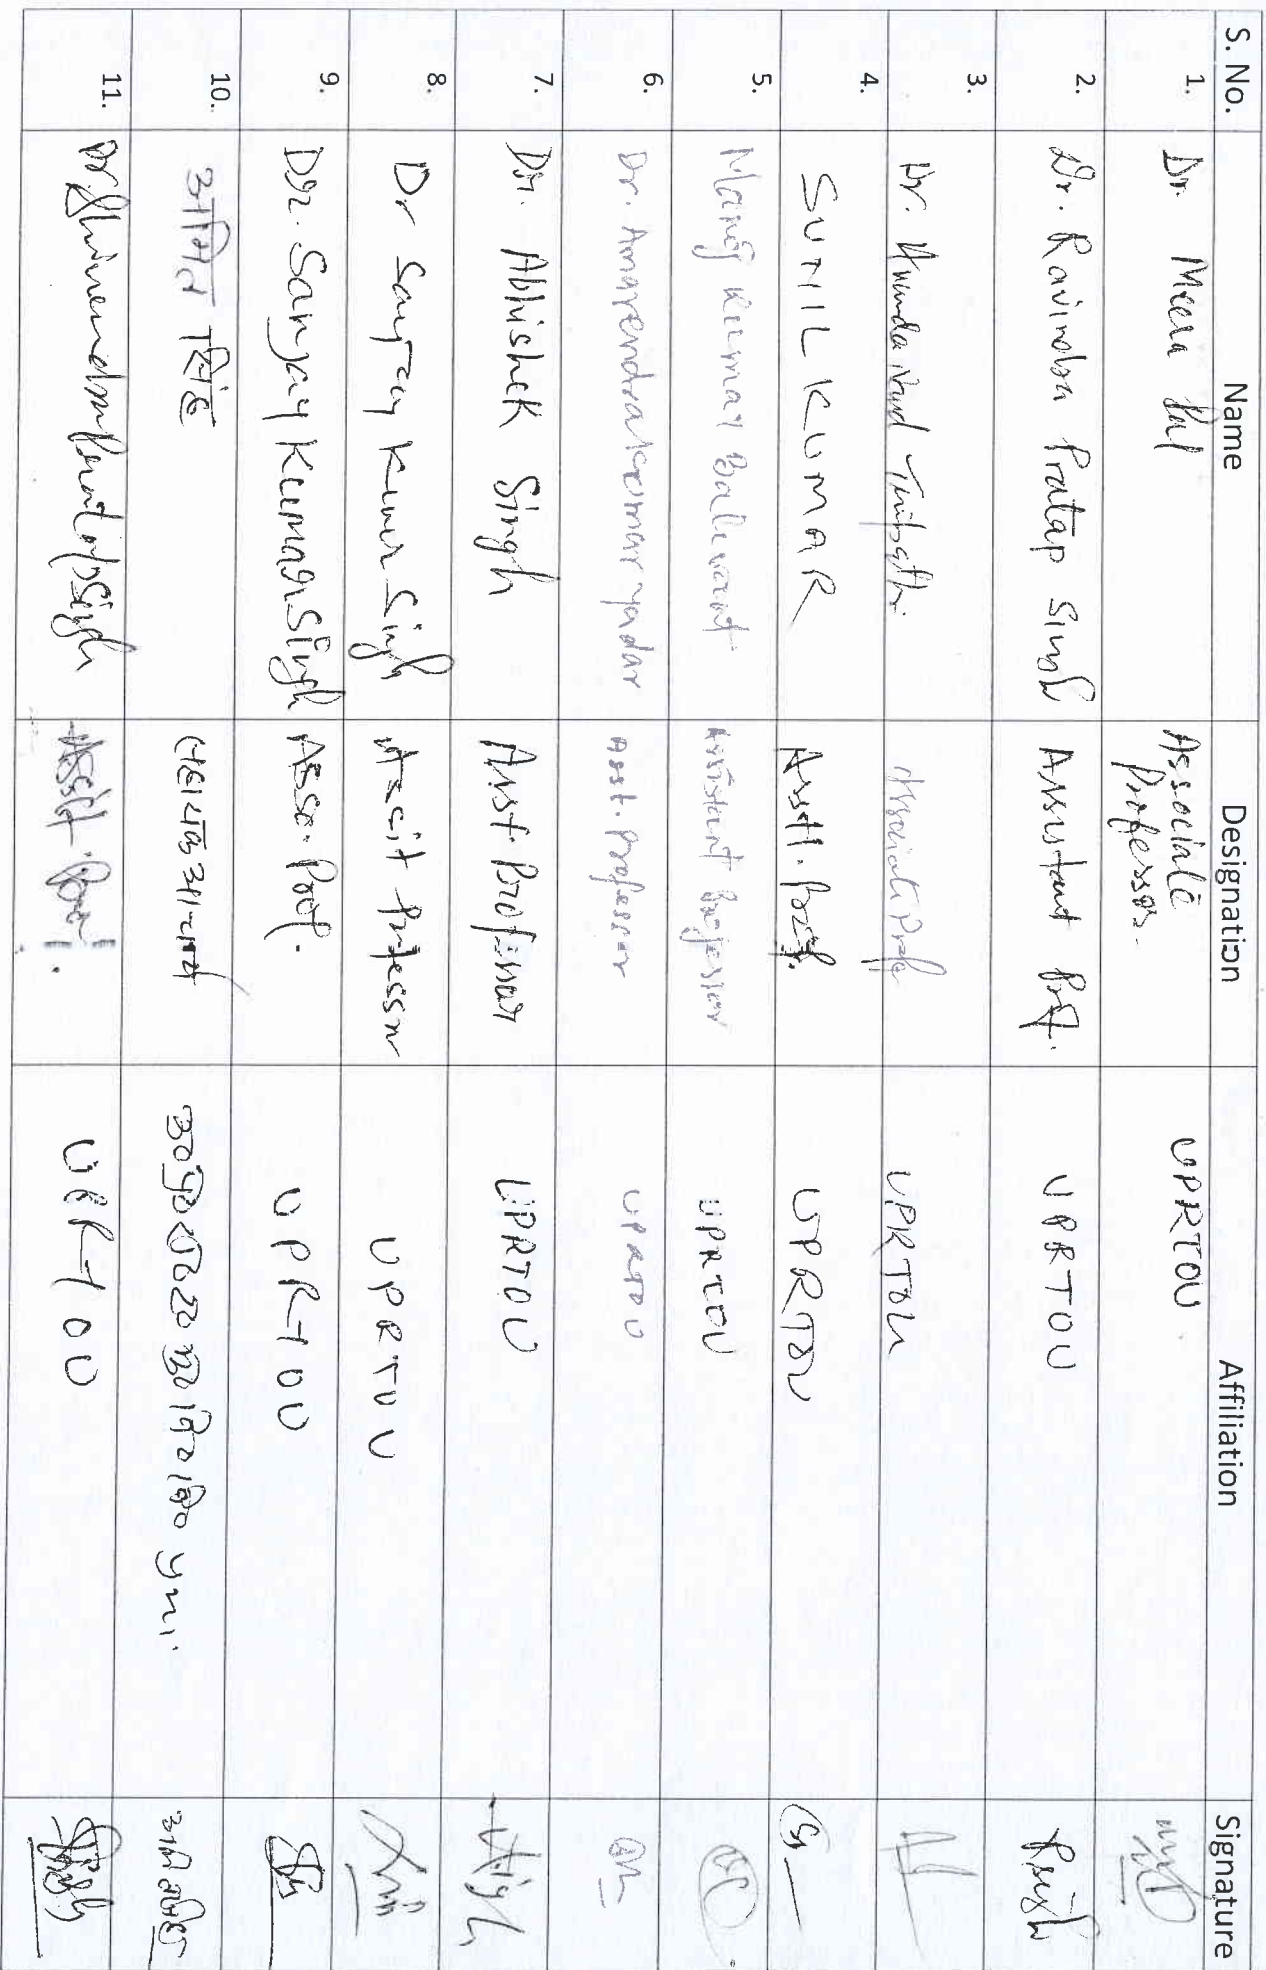 S. No. Name Designation Affiliation Signature
1. Dr. Meera Pal Associate Professor. UPRTOU
2. Dr. Ravindra Pratap Singh Assistant Prof. UPRTOU RSingh
3. Dr. Nand Tripathi Associate Prof UPRTOU
4. SUNIL KUMAR Asstt. Prof. UPRTOU
5. Manoj Kumar Balwant Assistant Professor UPRTOU
6. Dr. Amarendra Kumar Yadav Asst. Professor UPRTOU
7. Dr. Abhishek Singh Asst. Professor UPRTOU
8. Dr Sanjay Kumar Singh Professor UPRTOU
9. Dr. Sanjay Kumar Singh Asso. Prof. UPRTOU
10. सिंह सहायक आचार्य
11. Singh UPRTOU